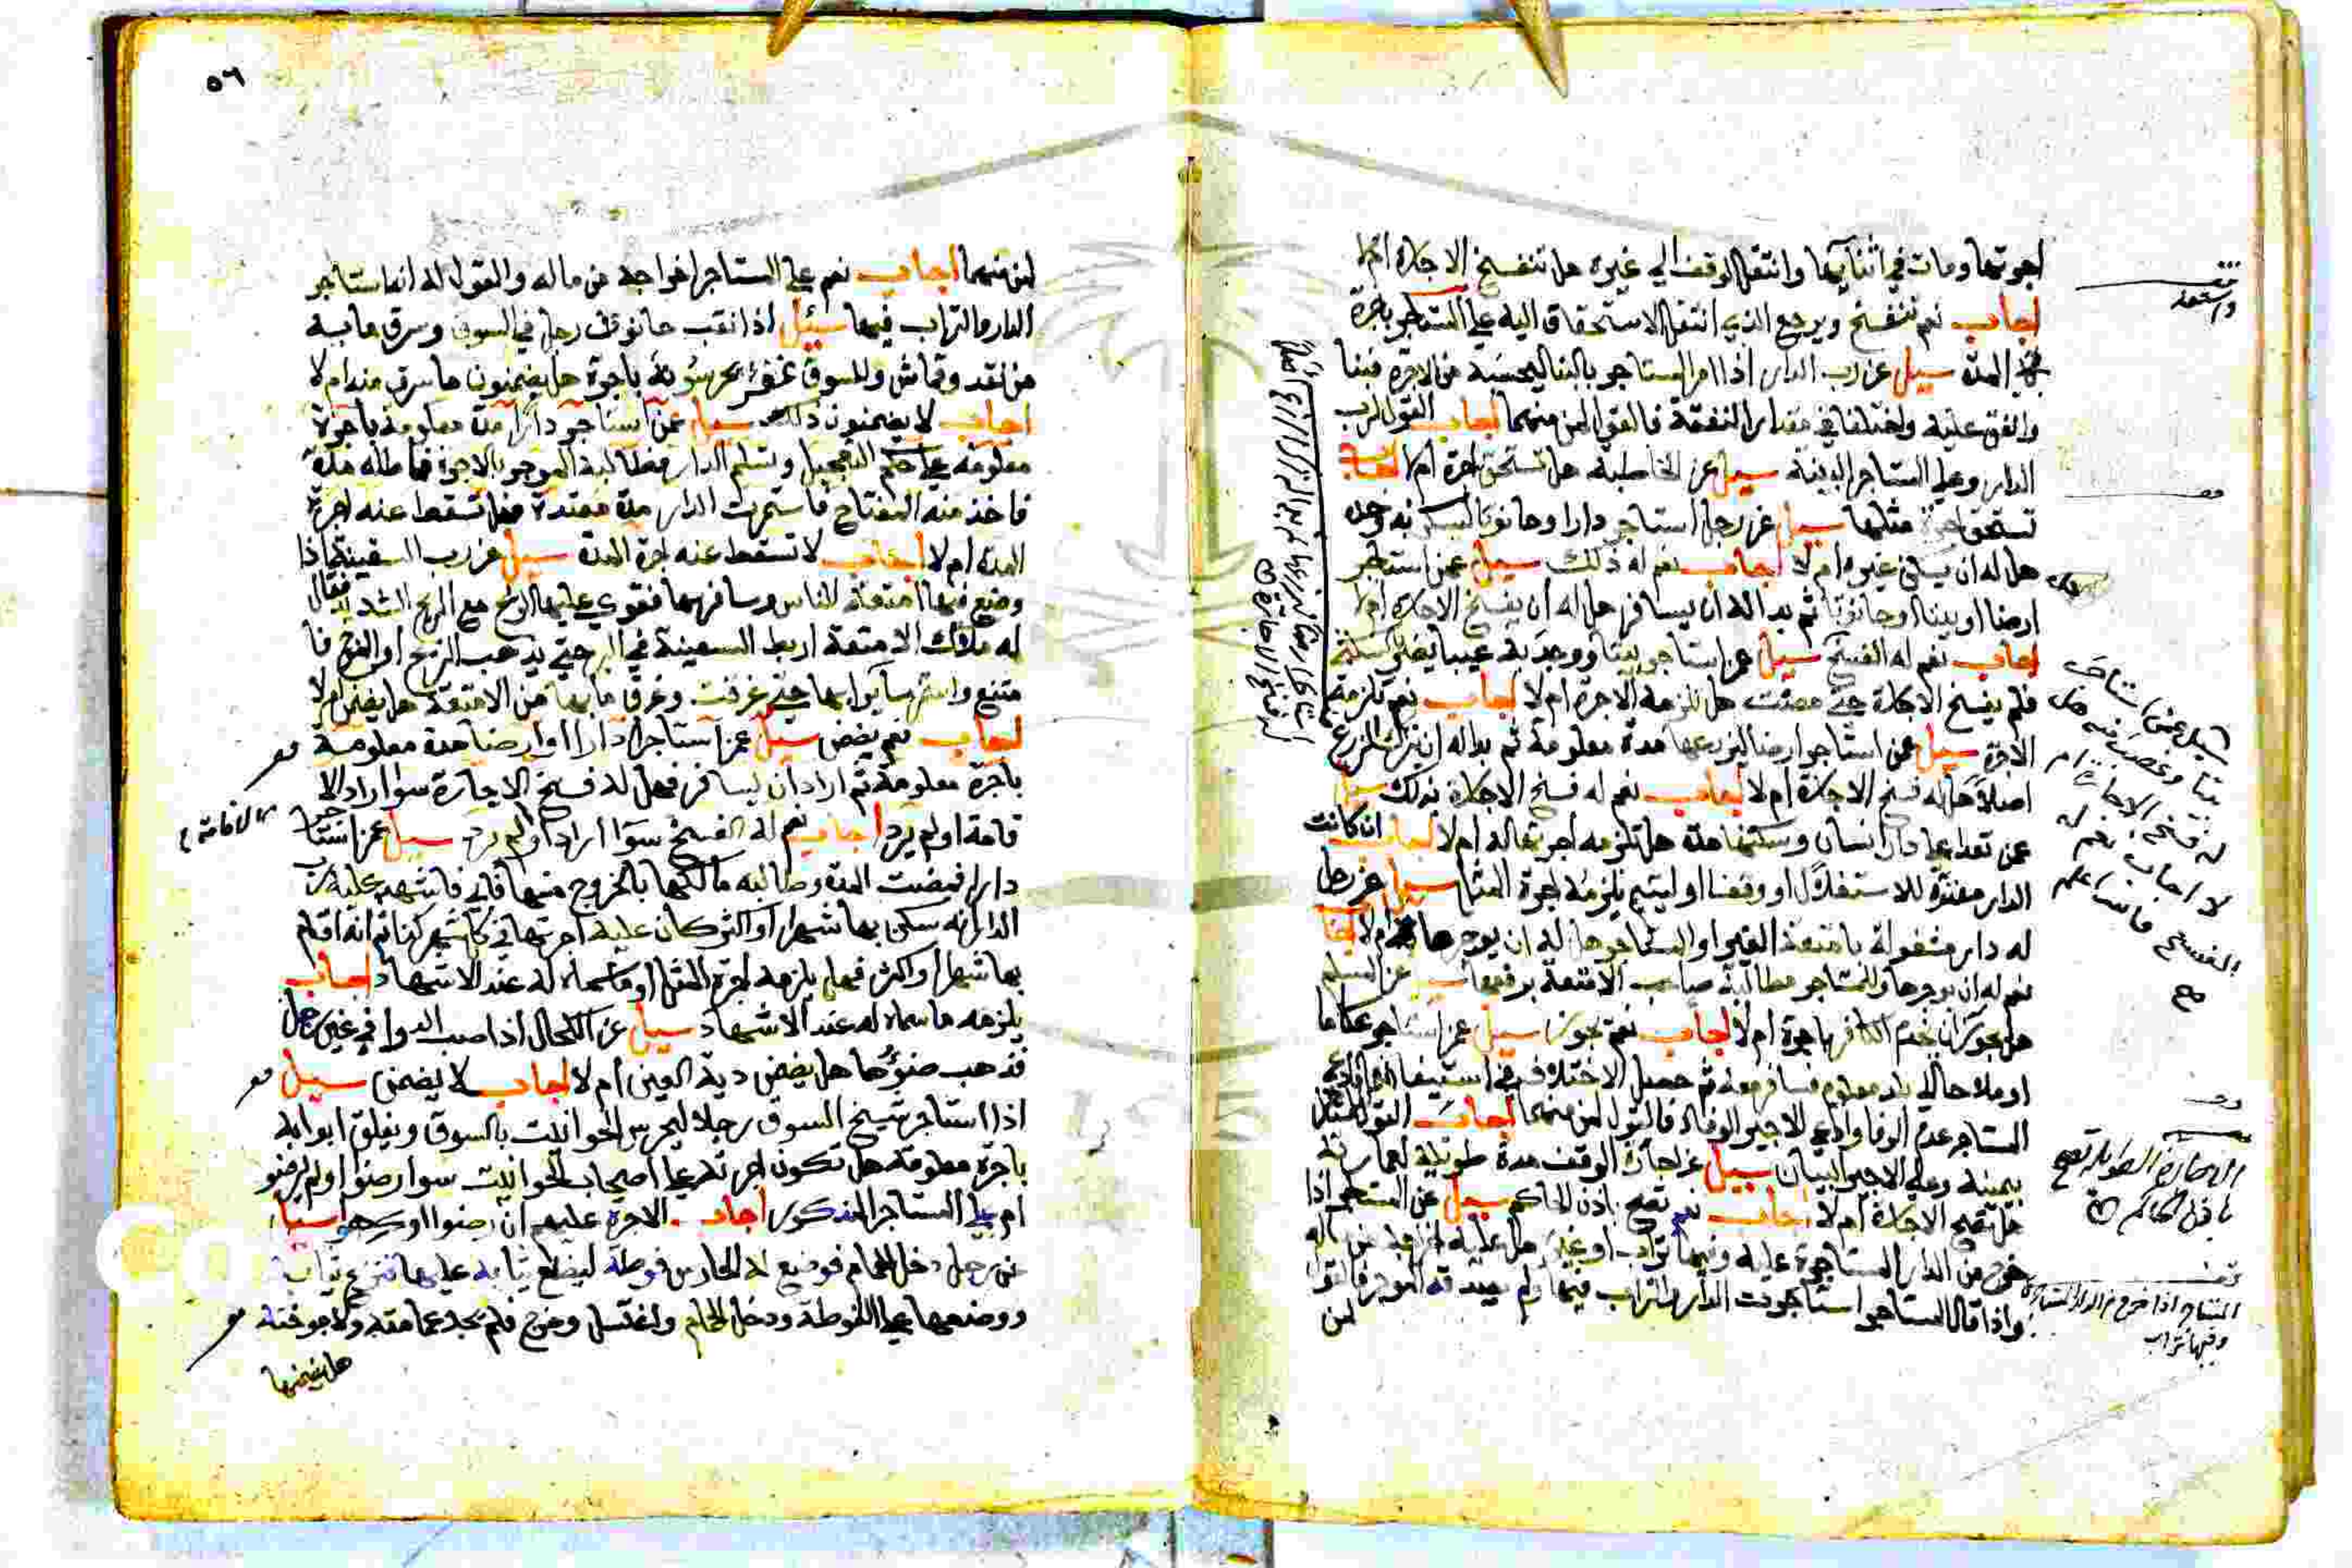 اجرتها ومات في اثنايها وانتقل الوقف الي غيره هل تنفسخ الاجارة ام لا
اجاب نعم تنفسخ ويرجع الذي انتقل الاستحقاق اليه علي المستاجر باجرة
المدة سيل عن رب الدار اذا امر المستاجر بالبنا ليحسبه من الاجرة فبنا
وانفق عليه واختلفا في مقدار النفقة فالقول لمن منهما اجاب القول لرب
الدار وعلي المستاجر البينة سيل عن الخاطبة هل تستحق اجرة ام لا اجاب
تستحق اجرة مثلها سيل عن رجل استاجر دارا او حانوتا ليسكن به وحده
هل له ان يسكن غيره ام لا اجاب نعم له ذلك سيل عمن استاجر
ارضا او بيتا او حانوتا ثم بدا له ان يسافر هل له ان يفسخ الاجارة ام لا
اجاب نعم له الفسخ سيل عن استاجر بيتا ووجد به عيبا يضر بسكنه
فلم يفسخ الاجارة حتي مضت هل تلزمه الاجرة ام لا اجاب نعم تلزمه
الاجرة سيل عن استاجر ارضا ليزرعها مدة معلومة ثم بدا له ان يترك الزرع
اصلا هل له فسخ الاجارة ام لا اجاب نعم له فسخ الاجارة بذلك سيل
عمن تعدا علي دار انسان وسكنها مدة هل تلزمه اجرتها له ام لا اجاب ان كانت
الدار معدة للاستغلال او وقفا او ليتيم يلزمه اجرة المثل سيل عن رجل
له دار مشغولة بامتعة الغير او المستاجر هل له ان يوجرها ام لا اجاب
نعم له ان يوجرها وللمستاجر مطالبة صاحب الامتعة برفعها سيل عن المسلم
هل يجوز ان يخدم الكافر باجرة ام لا اجاب نعم يجوز سيل عمن استاجر عكاما
او ملاحا الي بلد معلوم فسافر معه ثم حصل الاختلاف في استيفا
المستاجر عدم الوفا وادعي الاجير الوفاء فالقول لمن منهما اجاب القول
بيمينه وعلي الاجير البيان سيل عن اجارة الوقف مدة طويلة لعمارته
هل تصح الاجارة ام لا اجاب نعم تصح باذن الحاكم سيل عن المستاجر اذا
خرج من الدار المستاجرة عليه وفيها تراب او غيره هل عليه اخراجه من ماله
واذا قال المستاجر استاجرت الدار والتراب فيها ولم يصدقه الموجر فالقول
لمن
سيل عمن استاجر
بيتا وغصب منه هل
له فسخ الاجارة ام
لا اجاب نعم له
الفسخ
صح
الاجارة الطويلة تصح
باذن الحاكم
المستاجر اذا خرج من الدار المستاجرة
وفيها تراب
٥٦
لمن منهما اجاب نعم علي المستاجر اخراجه من ماله والقول له انه استاجر
الدار والتراب فيها سيل اذا نقب حانوت رجل في السوق وسرق ما به
من نقد وقماش وللسوق غفر يحرسونه باجرة هل يضمنون ما سرق منه ام لا
اجاب لا يضمنون ذلك سيل عن استاجر دارا مدة معلومة باجرة
معلومة علي حكم التعجيل وتسلم الدار فطالبه الموجر بالاجرة فماطله مدة
فاخذ منه المفتاح فاستمرت الدار مدة معتدة فهل تسقط عنه اجرة
المدة ام لا اجاب لا تسقط عنه اجرة المدة سيل عن رب السفينة اذا
وضع فيها امتعة للناس وسافر بها فقوي عليها الموج مع الريح الشديد فقال
له ملاك الامتعة اربط السفينة في البر حتي يذهب الريح او الموج فا
متنع واستمر سايرا بها حتي غرقت وغرق ما بها من الامتعة هل يضمن ام لا
اجاب نعم يضمن سيل عمن استاجر دارا او ارضا مدة معلومة
باجرة معلومة ثم اراد ان يسافر فهل له فسخ الاجارة سوا اراد الا
قامة او لم يرد اجاب نعم له الفسخ سوا اراد او لم يرد سيل عمن استاجر
دارا فمضت المدة وطالبه مالكها بالخروج منها فابي فاشهد عليه رب
الدار انه سكن بها شهرا او اكثر كان عليه اجرتها في كل شهر كذا ثم انه اقام
بها شهرا او اكثر فهل يلزمه اجرة المثل او ما سماه له عند الاشهاد اجاب
يلزمه ما سماه له عند الاشهاد سيل عن الكحال اذا صب الدوا في عين رجل
فذهب ضوها هل يضمن دية العين ام لا اجاب لا يضمن سيل
اذا استاجر شيخ السوق رجلا ليحرس الحوانيت بالسوق ويغلق ابوابه
باجرة معلومة هل تكون اجرته علي اصحاب الحوانيت سوا رضوا او لم يرضو
ام علي المستاجر المذكور اجاب الاجرة عليهم ان رضوا او كرهوا سيل
عن رجل دخل الحمام فوضع له الحارس فوطة ليضع ثيابه عليها فنزع ثيابه
ووضعها علي الفوطة ودخل الحمام واغتسل وخرج فلم يجد عمامته ولا جوخته
هل يضمنها